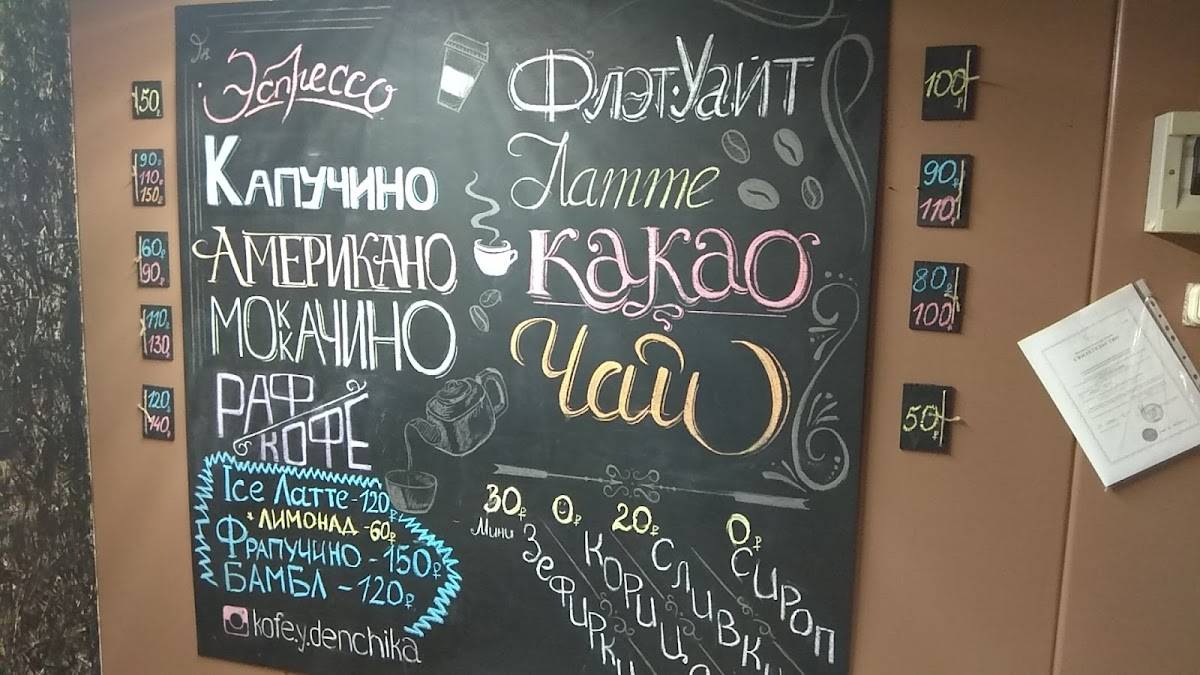 Эспрессо
50₽
Капучино
90₽
110₽
150₽
Американо
60₽
90₽
Моккачино
110₽
130₽
Раф
кофе
120₽
140₽
Ice Латте - 120₽
+ Лимонад - 60₽
Фрапучино - 150₽
Бамбл - 120₽
kofe.y.denchika
Флэт Уайт
100₽
Латте
90₽
110₽
Какао
80₽
100₽
Чай
50₽
30₽
Мини
Зефирки
0₽
Корица
20₽
Сливки
0₽
Сироп
СВИДЕТЕЛЬСТВО